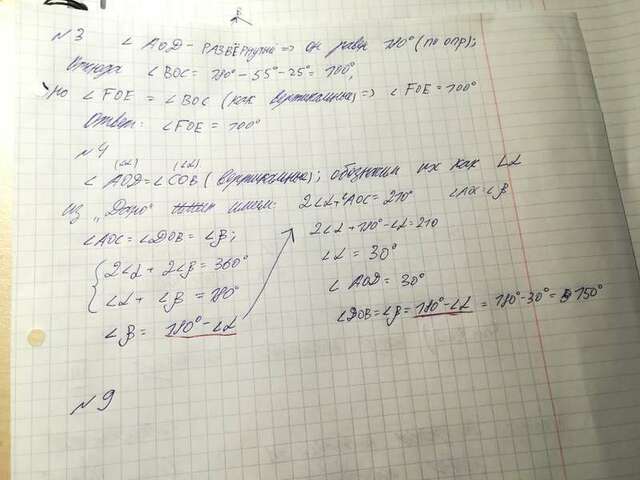 B
N3 ∠ AOD - РАЗВЁРНУТЫЙ => он равен 180° (по опр);
Откуда ∠BOC = 180° - 55° - 25° = 100°,
но ∠FOE = ∠BOC (как вертикальные) => ∠FOE = 100°
Ответ: ∠FOE = 100°
N4
(∠α) (∠α)
∠ AOD = ∠COB (вертикальные); обозначим их как ∠α
из „Дано" имеем: 2∠α + ∠AOC = 210° ∠AOC = ∠β
∠AOC = ∠DOB = ∠β;
2∠α + 180° - ∠α = 210
2∠α + 2∠β = 360°
∠α = 30°
∠α + ∠β = 180°
∠ AOD = 30°
∠β = 180° - ∠α
∠DOB = ∠β = 180° - ∠α = 180° - 30° = 150°
N9